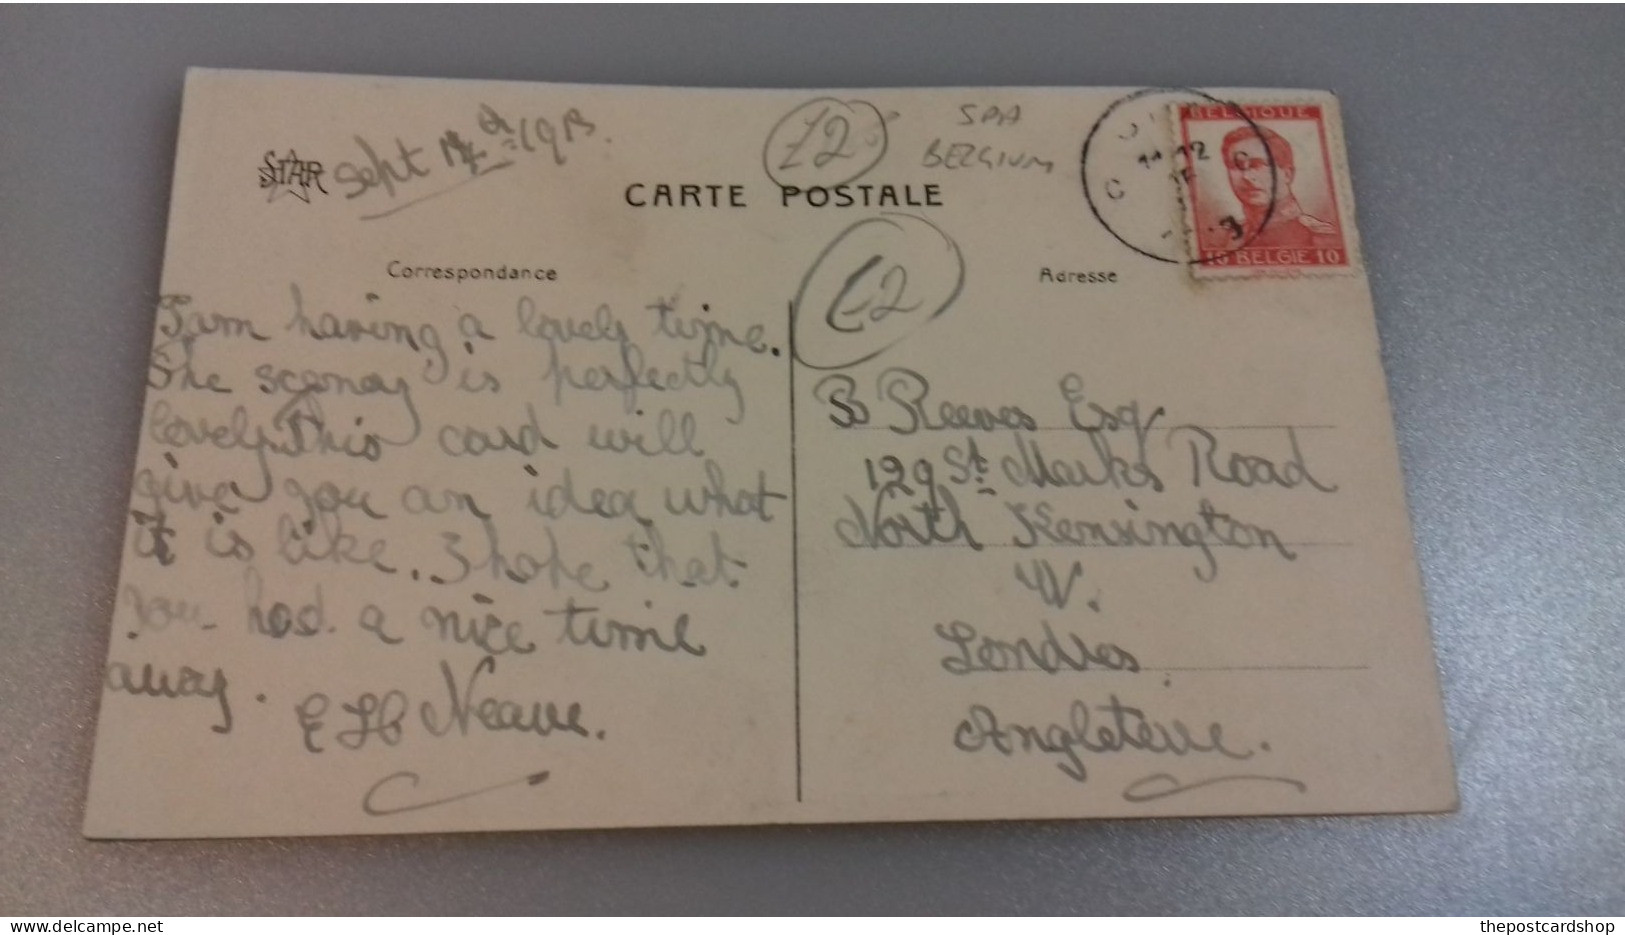 STAR
Sept 1913.
£2
SPA
BELGIUM
CARTE POSTALE
BELGIQUE
10 BELGIE 10
Correspondance
£2
Adresse
I am having a lovely time.
The scenery is perfectly
lovely. This card will
give you an idea what
it is like. I hope that
you had a nice time
away.
E H Neave.
B Reeves Esq
129 St. Marks Road
North Kensington
W.
Londres
Angleterre.
delcampe.net
thepostcardshop